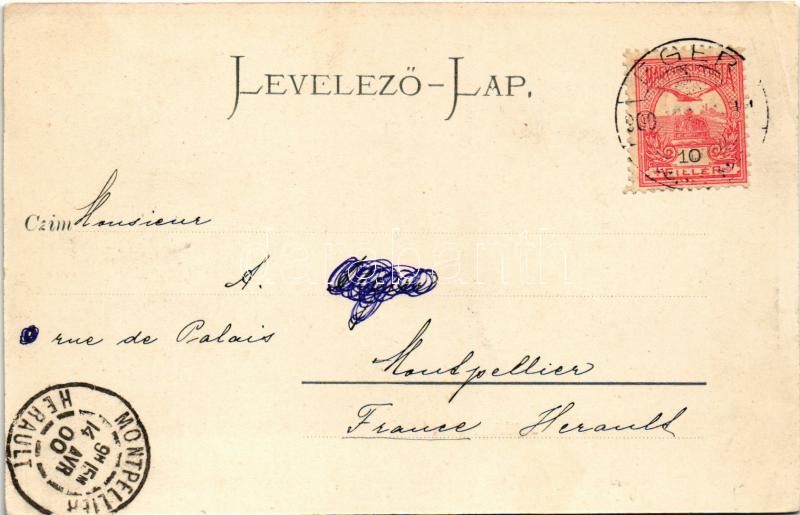 LEVELEZŐ-LAP.
EGER
10
FILLÉR
Czim Monsieur
A.
rue de Palais
Montpellier
France Herault
MONTPELLIER
9H 15M
14 AVR
00
HERAULT
darabanth